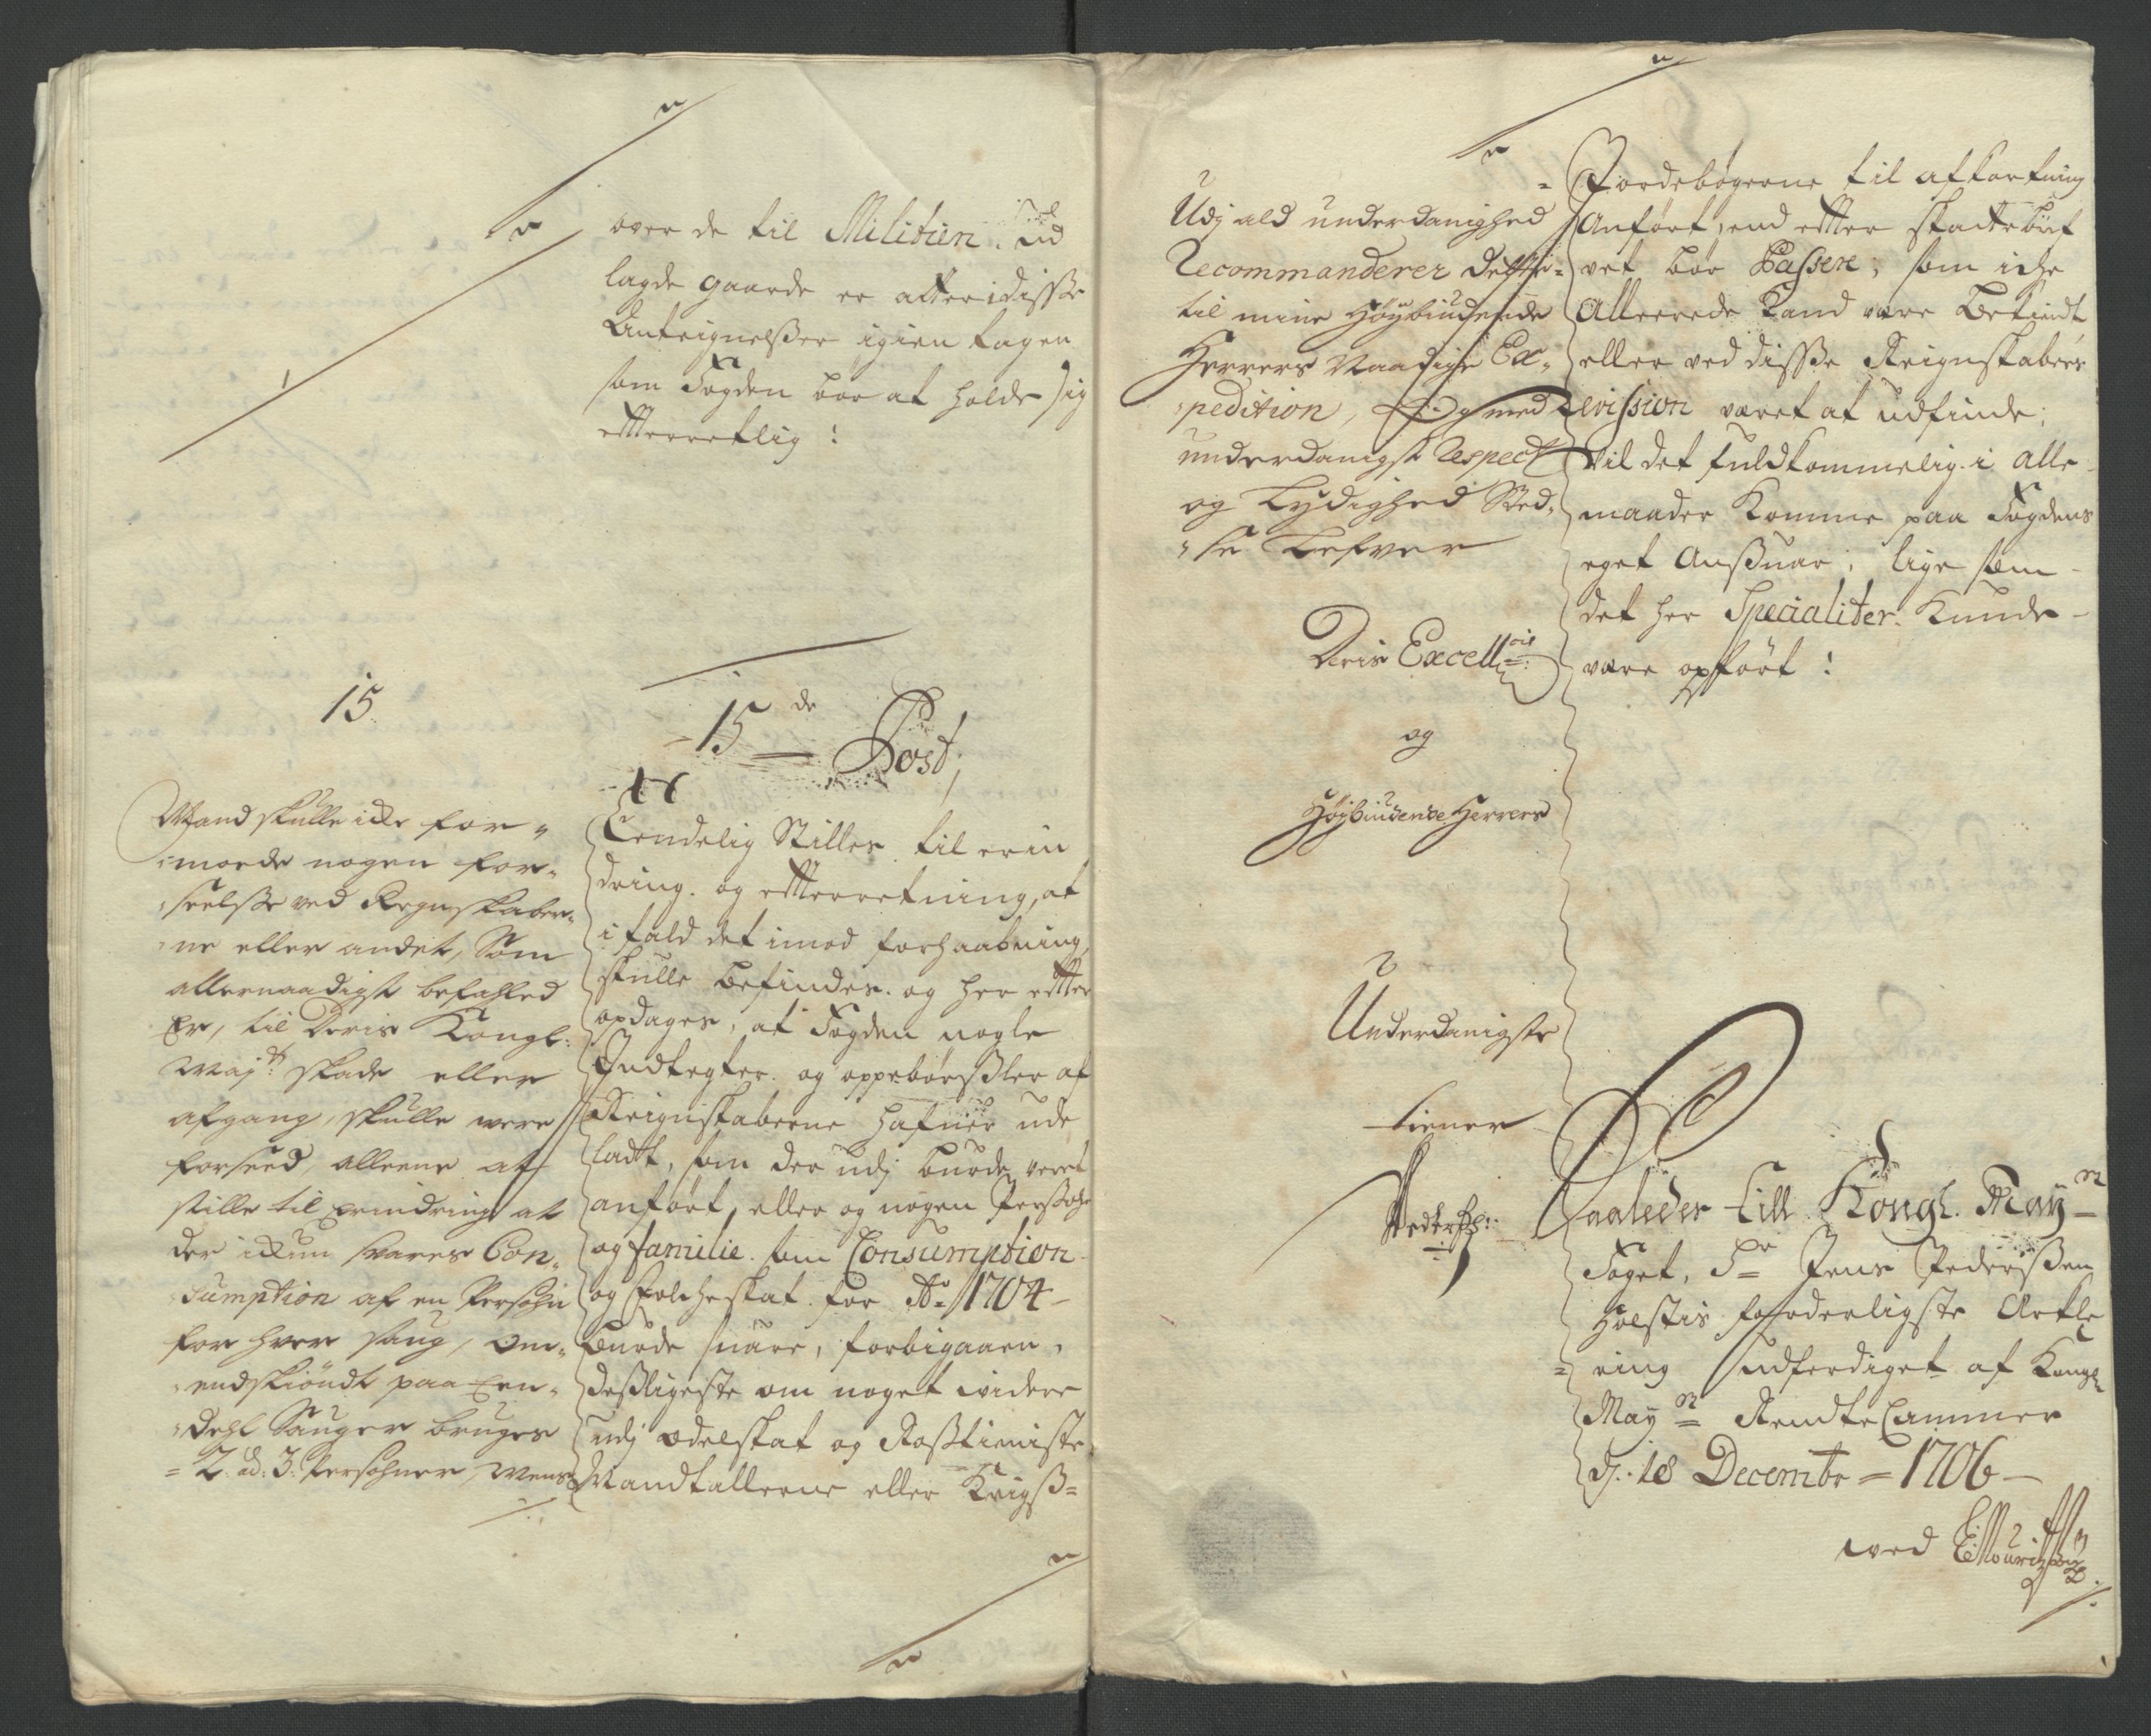 over de til Militien ud
lagde gaarde er atter i disse
Anteignelßer igien tagen
som Fogden bør at holde sig
etterretlig:
15.
Mand skulle icke for-
-moede nogen for-
-seelsse ved Regnskaber-
-ne eller andet, Som
allernaadigst befahled
Er, til Deris Kongl:
Maj:ts skade eller
afgang, skulle were
forseed, alleene at
stille til Erindring at
der ickun svares Con-
sumption af en Persohn
for hver saug, Om-
-endskiøndt paa Een-
-dehl Sauger bruges
=2 ad: 3 Persohner, mens
15de Post;
Eendelig Stilles til erin
dring og etterretning, at
i fald det imod forhaabning,
skulle befindes og her etter
opdages, at Fogden nogle
Indtegter og oppebørßler af
Reignskaberne hafuer ude
ladt, som der udj burde veret
anført, eller og nogen Perßohn
og familie som Consumption
og Folcheskat for Ao 1704
burde suare, forbigaaen,
deßligeste om noget videre
udj odelskat og Roßtieniste
Mandtallerne eller Krigß=
Udj ald underdanighed
Recommanderer dette
til mine Høybiudende
Herrers Naadige Ex-
-pedition, og med
underdanigst Respect
og Lydighed Sted-
-se Lefver
Deris Excell:cie
og
Høybiudende Herrers
Underdanigste
tiener
=Jordebøgerne til afkortning
Anført, end etter skatteb
vet bør Passere, som iche
Allerede Kand være bekiendt
eller ved disse Reignskabers
Revission været at udfinde;
Vil det fuldkommelig i alle
maader Komme paa Fogdens
eget Anßuar, lige som
det her Specialiter Kunde
være opført!
Saaledes till Kongl. Mayts
Foget, Sr Jens Pederßen
Hølstis forderligste Erkle
=ring udferdiget af Kongl
Mayts RendteCammer
d. 18 Decembr = 1706
ved